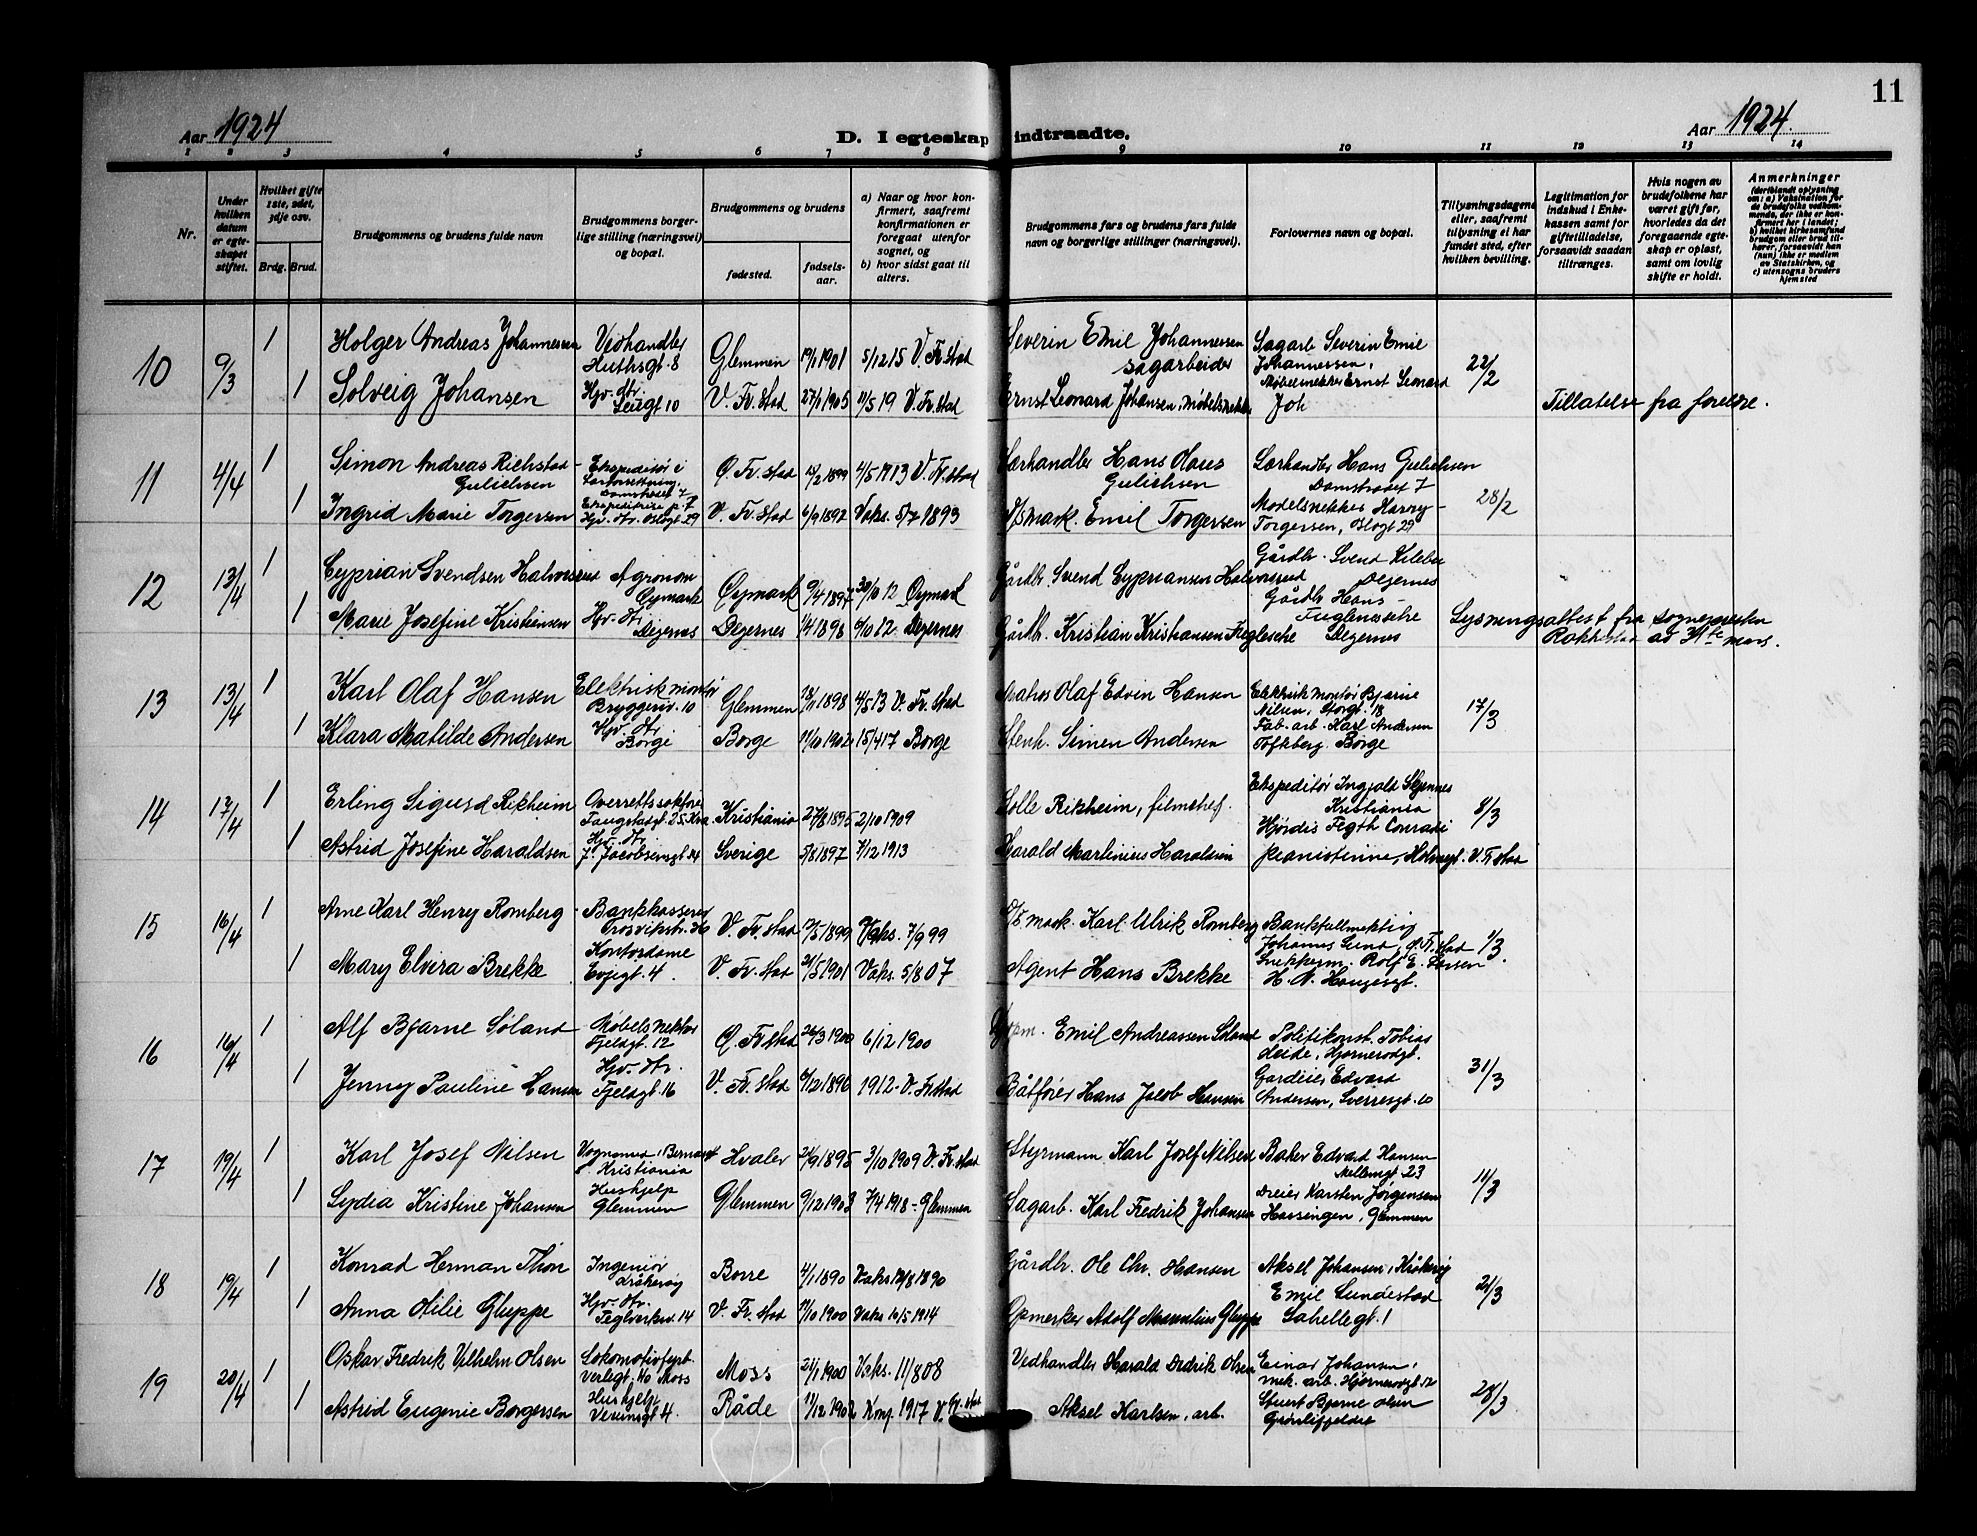 11
Aar 1924
D. I egteskap indtraadte.
Aar 1924.
1 2 3 4 5 6 7 8 9 10 11 12 13 14
Nr.
Under hvilken datum er egteskapet stiftet.
Hvilket gifte 1ste, 2det, 3dje osv.
Brdg. Brud.
Brudgommens og brudens fulde navn
Brudgommens borgerlige stilling (næringsvei) og bopæl.
Brudgommens og brudens
fødested.
fødselsaar.
a) Naar og hvor konfirmert, saafremt konfirmationen er foregaat utenfor sognet, og
b) hvor sidst gaat til alters.
Brudgommens fars og brudens fars fulde navn og borgerlige stillinger (næringsvei).
Forlovernes navn og bopæl.
Tillysningsdagene eller, saafremt tillysning ei har fundet sted, efter hvilken bevilling.
Legitimation for indskud i Enkekassen samt for giftetilladelse, forsaavidt saadan tiltrænges.
Hvis nogen av brudefolkene har været gift før, hvorledes da det foregaaende egteskap er opløst, samt om lovlig skifte er holdt.
Anmerkninger
(deriblandt oplysning om: a) Vaksination for de brudefolks vedkommende, der ikke er konfirmert her i landet; b) hvilket kirkesamfund brudgom eller brud tilhører, forsaavidt han (hun) ikke er medlem av Statskirken, og c) utensogns bruders hjemsted
10 9/3 1 Holger Andreas Johannessen Vedhandler Huthsgt. 8 Glemmen 19/1 1901 5/12 15 V. Fr.stad Severin Emil Johannessen sagarbeider Sagarb Severin Emil Johannessen, 22/2
1 Solveig Johansen Hjv. dtr. 10 V. Fr.stad 27/1 1905 11/5 19 V. Fr.stad Ernst Leonard Johansen, Møbelsnekker Møbelsnekker Ernst Leonard Joh Tillatelse fra foreldre.
11 4/4 1 Simon Andreas Gulichsen Ekspeditør i Damstredet 7 Ø. Fr.stad 1899 4/5 1913 V. Fr.stad Lærhandler Hans Gulichsen Lærhandler Hans Gulichsen Damstredet 7 28/2
1 Ingrid Marie Torgersen Hjv. dtr. 29 V. Fr.stad 6/9 1892 Vaks. 5/7 1893 Emil Torgersen Modelsnekker Harry Torgersen, 29
12 13/4 1 Cyprian Svendsen Halvorsrud Agronom Øymark Øymark 9/4 1897 30/10 12 Øymark Gårdbr. Svend Cypriansen Halvorsrud Gårdbr. Svend Degernes
1 Marie Josefine Kristiansen Hjv. dtr. Degernes Degernes 1898 6/10 12 Degernes Gårdb. Kristian Kristiansen Gårdbr Hans Degernes Lysningsattest fra sognepresten Rakkestad av 31te mars.
13 13/4 1 Karl Olaf Hansen Elektriskmontør Bryggeriv. 10 Glemmen 1898 4/5 13 V. Fr.stad Olaf Edvin Hansen Elektrik montør Bjarne Nilsen, Storgt. 18 17/3
1 Klara Matilde Andersen Hjv. dtr. Borge Borge 11/10 1902 15/4 17 Borge Stenh. Simen Andersen Fab. arb. Karl Andersen Tofteberg. Borge
14 17/4 1 Erling Sigurd Rikheim Overrettssakfører 25. Kra. Kristiania 27/8 1895 2/10 1909 Rikheim, filmchef. Ekspeditør Ingjald Skjennes Kristiania 8/3
1 Astrid Josefine Haraldsen Hjv. dtr. J. Jacobsensgt. 34 Sverige 5/8 1897 7/12 1913 Harald Martinius Haraldsen Hjørdis Conradi pianistinne, V. Fr.stad
15 16/4 1 Arne Karl Henry Romberg Bankkasserer Trosvikstr. V. Fr.stad 1899 Vaks. 7/9 99 mask. Karl Ulrik Romberg Bankfullmektig Johannes Lund, Ø. Fr.stad 1/3.
1 Mary Elvira Brekke Kontordame Evjegt. 4. V. Fr.stad 21/5 1901 Vaks. 5/8 07 Agent Hans Brekke Rolf E. Larsen H. N. Haugesgt.
16 16/4 1 Alf Bjarne Søland Møbelsnekker Fjeldgt. 12 Ø. Fr.stad 26/3 1900 6/12 1900 Emil Andreassen Søland Politikonst. Tobias Heide, Hjørnerødgt. 31/3
1 Jenny Pauline Hansen Hjv. dtr. Fjeldgt. 16 V. Fr.stad 6/12 1896 1912 - V. Fr.stad Båtfører Hans Jakob Hansen Edvard Andersen, Sverresgt. 10
17 19/4 1 Karl Josef Nilsen Kristiania Hvaler 21/9 1895 3/10 1909 V. Fr.stad Styrmann Karl Josef Nilsen Baker Edvard Hansen Møllensgt 23 11/3
1 Lydia Kristine Johansen Hushjelp Glemmen Glemmen 9/12 1903 7/4 1918 - Glemmen Sagarb. Karl Fredrik Johansen Dreier Karsten Jørgensen Hassingen, Glemmen
18 19/4 1 Konrad Herman Thon Ingeniør Kråkerøy Borre 4/1 1890 Vaks 1890 Gårdbr. Ole Chr. Hansen Aksel Johansen, Kråkerøy 21/3
1 Anna Otilie Gluppe Hjv. dtr. Teglverksv. 14 V. Fr.stad 1900 Vaks 10/5 1914 Opmerker Adolf Gluppe Emil Lundestad Labellegt. 1
19 20/4 1 Oskar Fredrik Vilhelm Olsen Lokomotivfyrb. Verlegt. 40 Moss Moss 21/1 1900 Vaks. 11/8 08 Vedhandler Harald Didrik Olsen Einar Johansen, mek. arb. Hjørnerødgt. 12 28/3
1 Astrid Eugenie Borgersen Hushjelp 4. Råde 11/12 1902 Konf. 1917 V. Fr.stad Aksel Karlsen, arb. Stuert Bjarne Olsen Grønlifjeldet